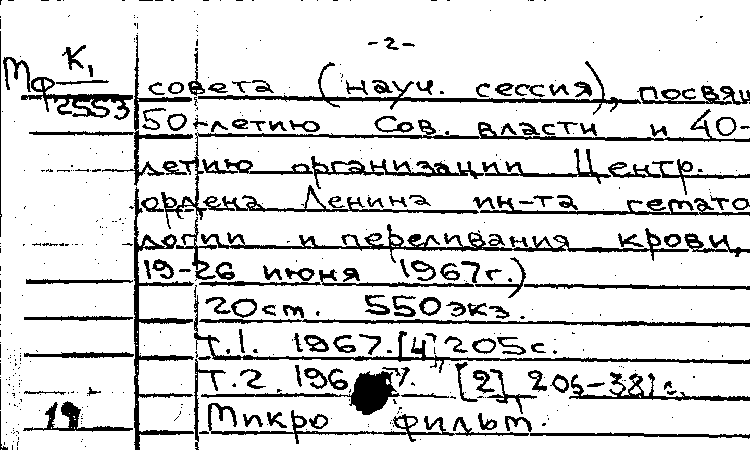 -2-
Мф К₁
2553
совета (науч. сессия), посвящ
50-летию Сов. власти и 40-
летию организации Центр.
ордена Ленина ин-та гемато
логии и переливания крови,
19-26 июня 1967г.)
20см. 550экз.
Т.1. 1967. [4] 205с.
Т.2. 196 [2], 206-381с.
19 Микро фильм.